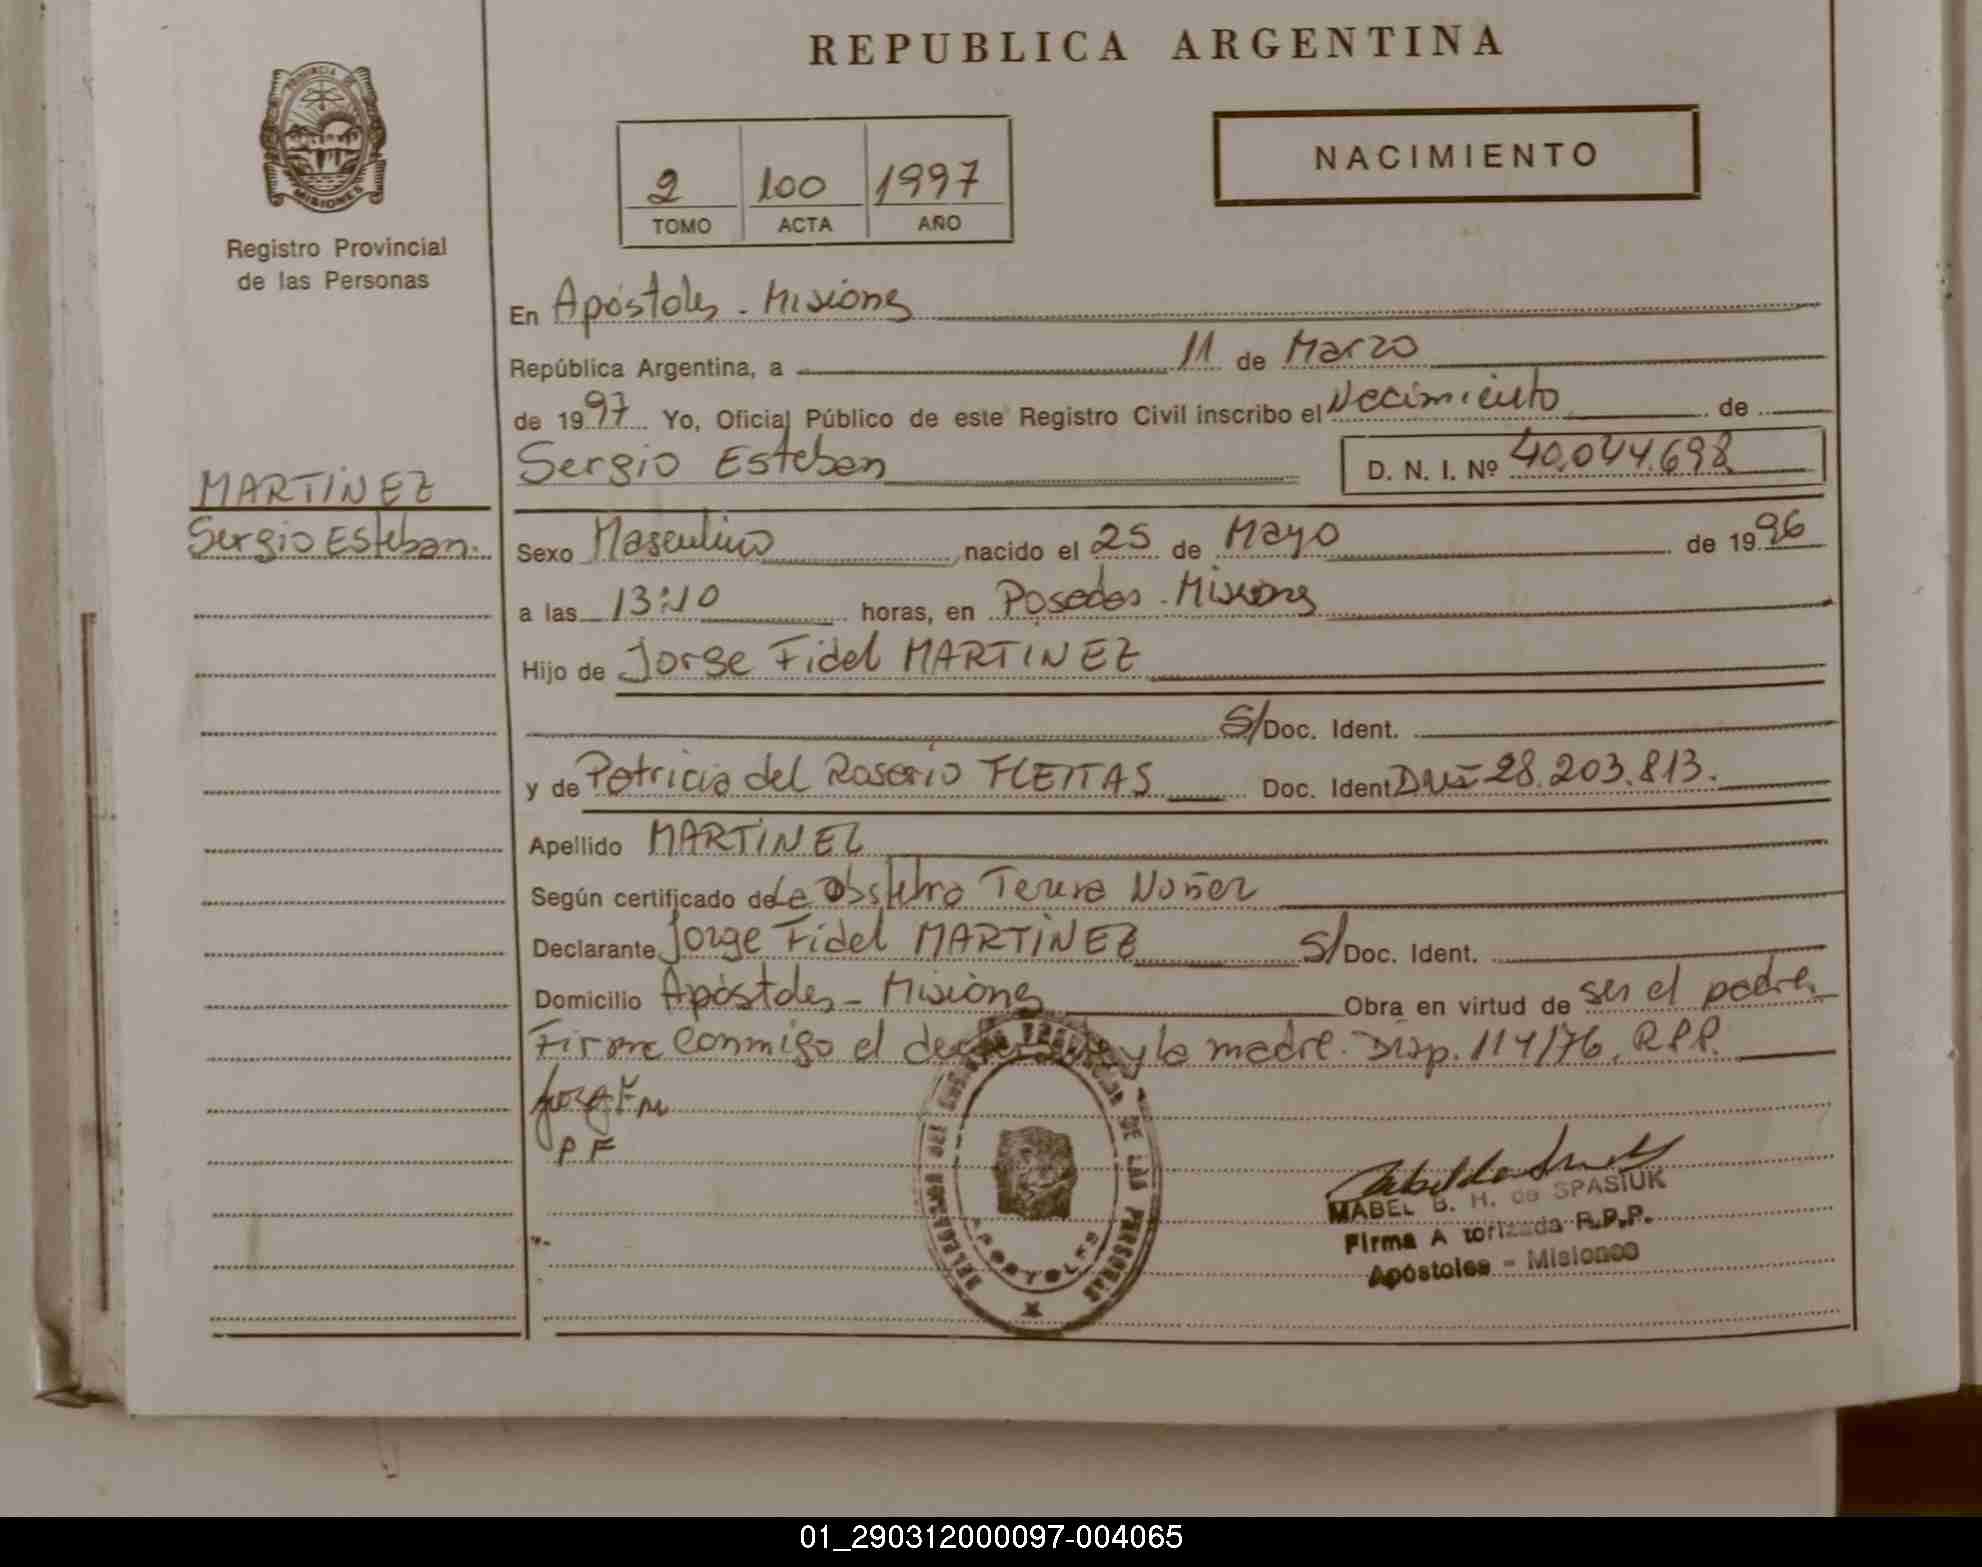 REPUBLICA ARGENTINA
PROVINCIA DE
MISIONES
Registro Provincial
de las Personas
2 100 1997
TOMO ACTA AÑO
NACIMIENTO
En Apóstoles - Misiones
República Argentina, a 11 de Marzo
de 1997 Yo, Oficial Público de este Registro Civil inscribo el Nacimiento de
Sergio Esteban D. N. I. Nº 40.044.698
MARTINEZ
Sergio Esteban
Sexo Masculino nacido el 25 de Mayo de 1996
a las 13:10 horas, en Posadas - Misiones
Hijo de Jorge Fidel MARTINEZ
S/Doc. Ident.
y de Patricia del Rosario FLEITAS Doc. Ident DNI 28.203.813.
Apellido MARTINEZ
Según certificado de La Obstetra Teresa Nuñez
Declarante Jorge Fidel MARTINEZ S/Doc. Ident.
Domicilio Apóstoles - Misiones Obra en virtud de ser el padre.
Firma conmigo el declarante y la madre. Disp. 114/76. RPP.
P F
DELEGACION DEL REGISTRO PROVINCIAL DE LAS PERSONAS
APOSTOLES
MABEL B. H. de SPASIUK
Firma A torizada R.P.P.
Apóstoles - Misiones
01_290312000097-004065